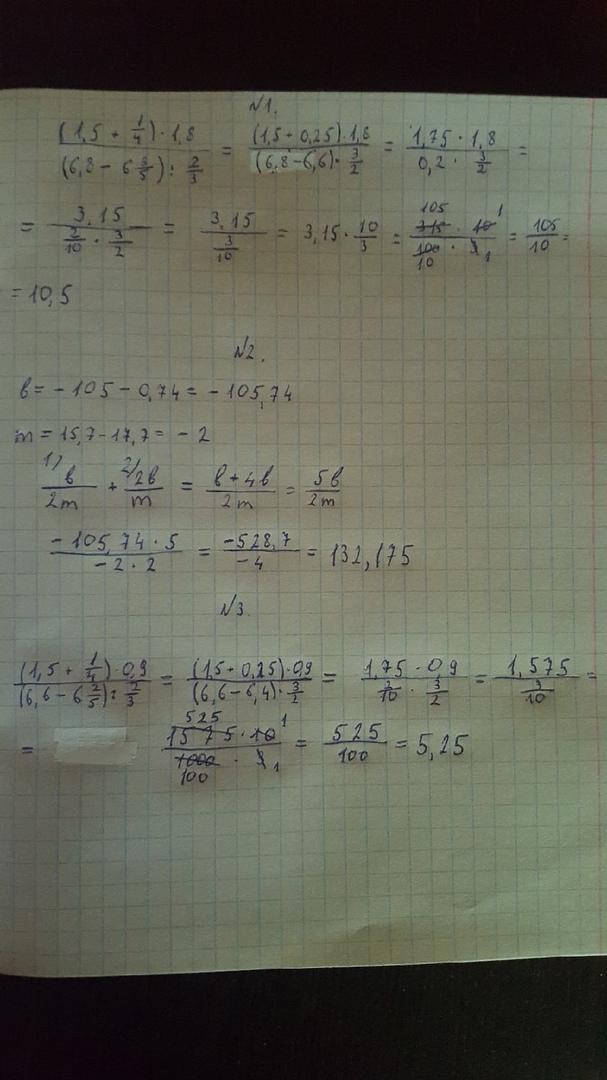 №1.
((1,5 + 1/4) · 1,8)/((6,8 − 6 3/5) : 2/3) = ((1,5 + 0,25) · 1,8)/((6,8 − 6,6) · 3/2) = (1,75 · 1,8)/(0,2 · 3/2) =
= 3,15/(2/10 · 3/2) = 3,15/(3/10) = 3,15 · 10/3 = (315 · 10)/(100 · 3) 105 1 10 1 = 105/10 =
= 10,5
№2.
в = − 105 − 0,74 = − 105,74
m = 15,7 − 17,7 = − 2
1) в/2m + 2) 2в/m = (в + 4в)/2m = 5в/2m
(− 105,74 · 5)/(− 2 · 2) = −528,7/−4 = 132,175
№3.
((1,5 + 1/4) · 0,9)/((6,6 − 6 2/5) : 2/3) = ((1,5 + 0,25) · 0,9)/((6,6 − 6,4) · 3/2) = (1,75 · 0,9)/(2/10 · 3/2) = 1,575/(3/10) =
= (1575 · 10)/(1000 · 3) 525 1 100 1 = 525/100 = 5,25